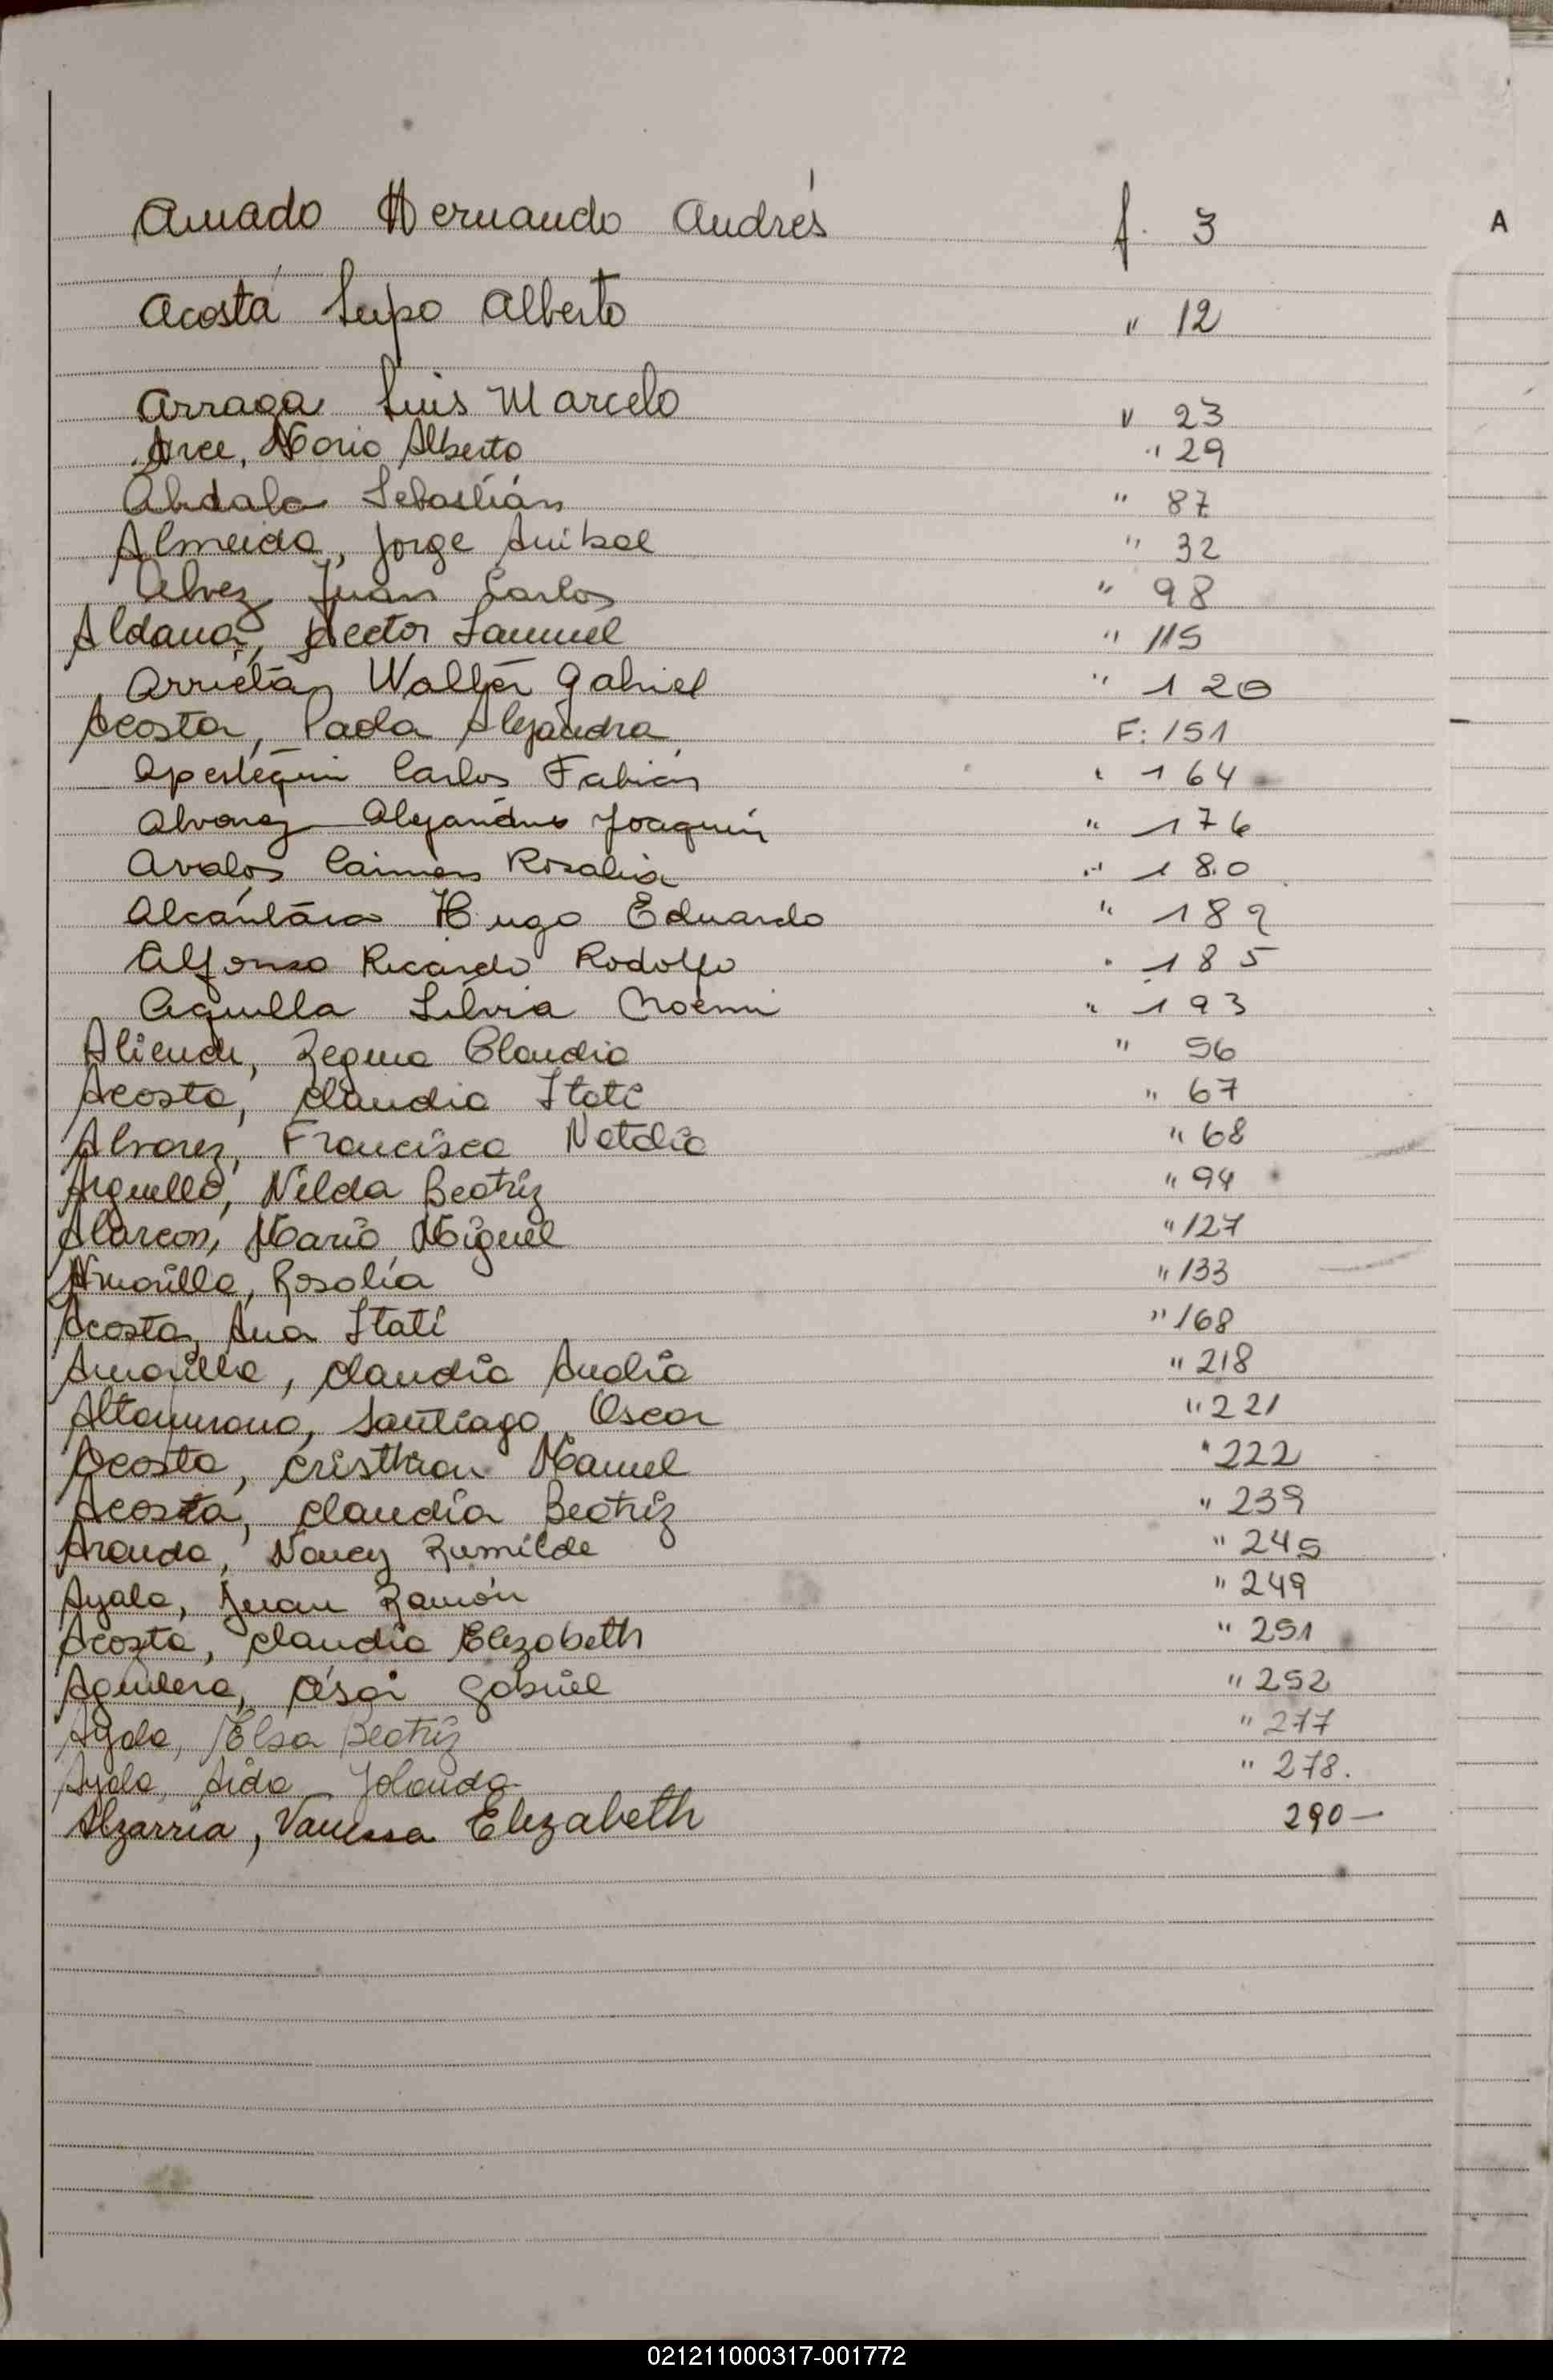 Amado Hernando Andrés f. 3
A
Acosta Lupo Alberto " 12
Arraga Luis Marcelo " 23
Arce, Mario Alberto " 29
Abdala Sebastián " 87
Almeida, Jorge Anibal " 32
Alvez Juan Carlos " 98
Aldana, Hector Samuel " 115
Arrieta Walter Gabriel " 120
Acosta, Paola Alejandra F: 151
Apestegui Carlos Fabián " 164
Alvarez Alejandro Joaquín " 176
Avalos Rosalia " 180
Alcántara Hugo Eduardo " 189
Alfonso Ricardo Rodolfo " 185
Aquilla Silvia Noemi " 193
Aliende, Regina Claudia " 56
Acosta, Claudia Itatí " 67
Alvarez, Francisca Natalia " 68
Arguello, Nilda Beatriz " 94
Alarcon, Mario Miguel " 127
Amarilla, Rosalía " 133
Acosta, Ana Itatí " 168
Amarilla, Claudia Analía " 218
Altamirano, Santiago Oscar " 221
Acosta, Cristhian Manuel " 222
Acosta, Claudia Beatriz " 239
Aranda, Nancy Rumilde " 245
Ayala, Juan Ramón " 249
Acosta, Claudia Elizabeth " 251
Aguilera, César Gabriel " 252
Ayala, Elsa Beatriz " 277
Ayala, Aida Yolanda " 278.
Alzarria, Vanessa Elizabeth 290-
021211000317-001772